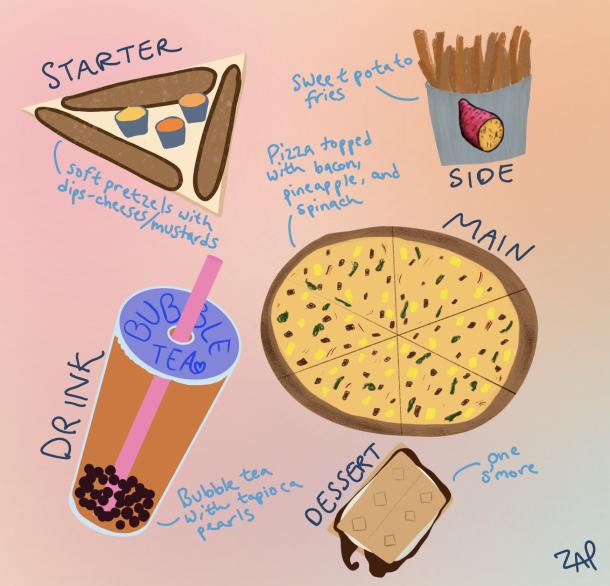 STARTER
soft pretzels with
dips-cheeses/mustards
Sweet potato
fries
SIDE
Pizza topped
with bacon,
pineapple, and
spinach
MAIN
BUBBLE
TEA
DRINK
Bubble tea
with tapioca
pearls
DESSERT
one
s'more
ZAP